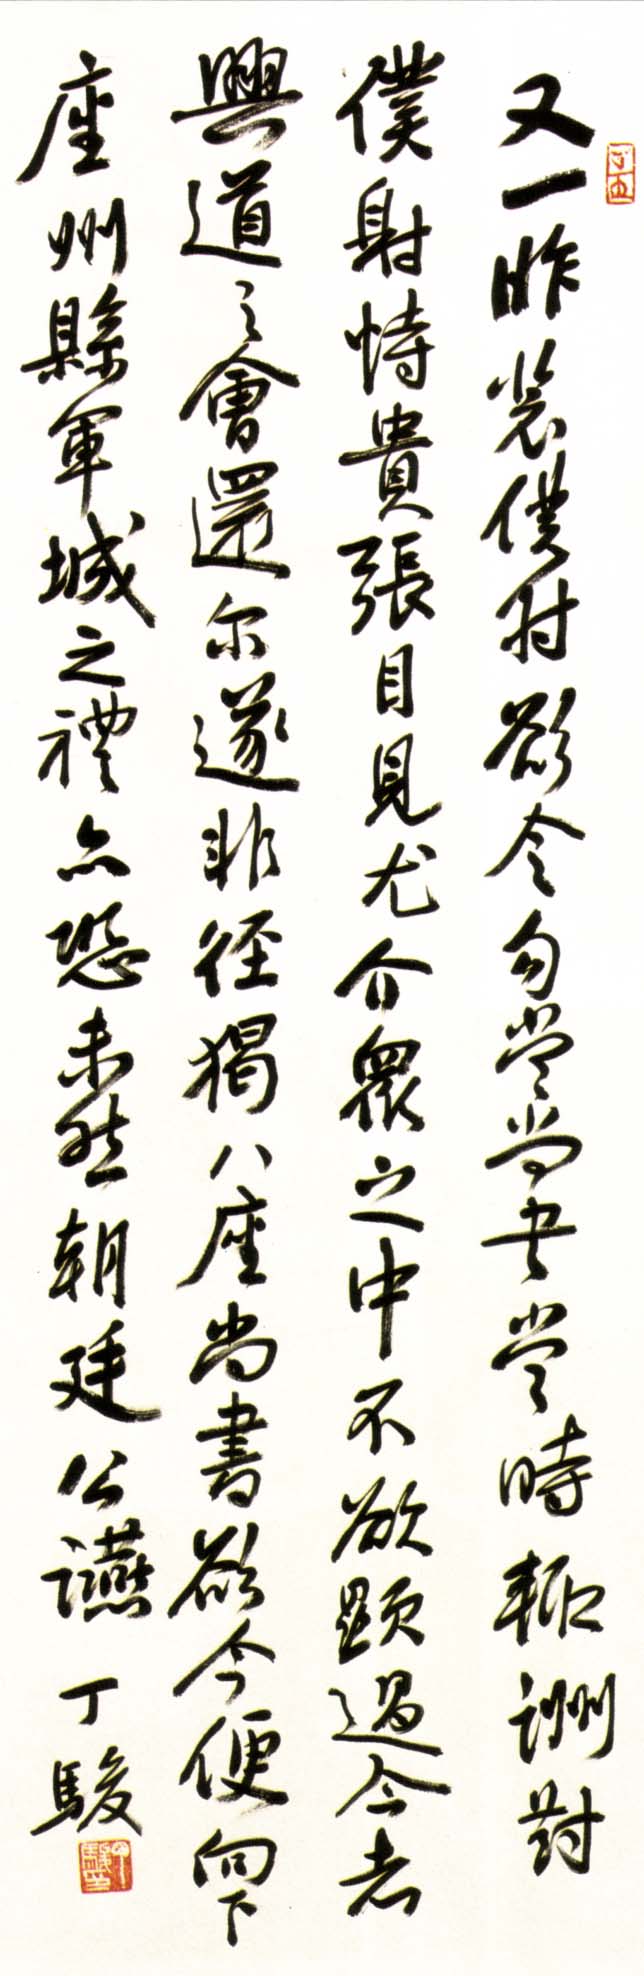 又一昨裴僕射欲令勾當尚書當時輒詶對
僕射恃貴張目見尤介衆之中不欲顯過今者
興道之會還尔遂非徑猲八座尚書欲令便向下
座州縣軍城之禮亦恐未然朝廷公讌 丁駿